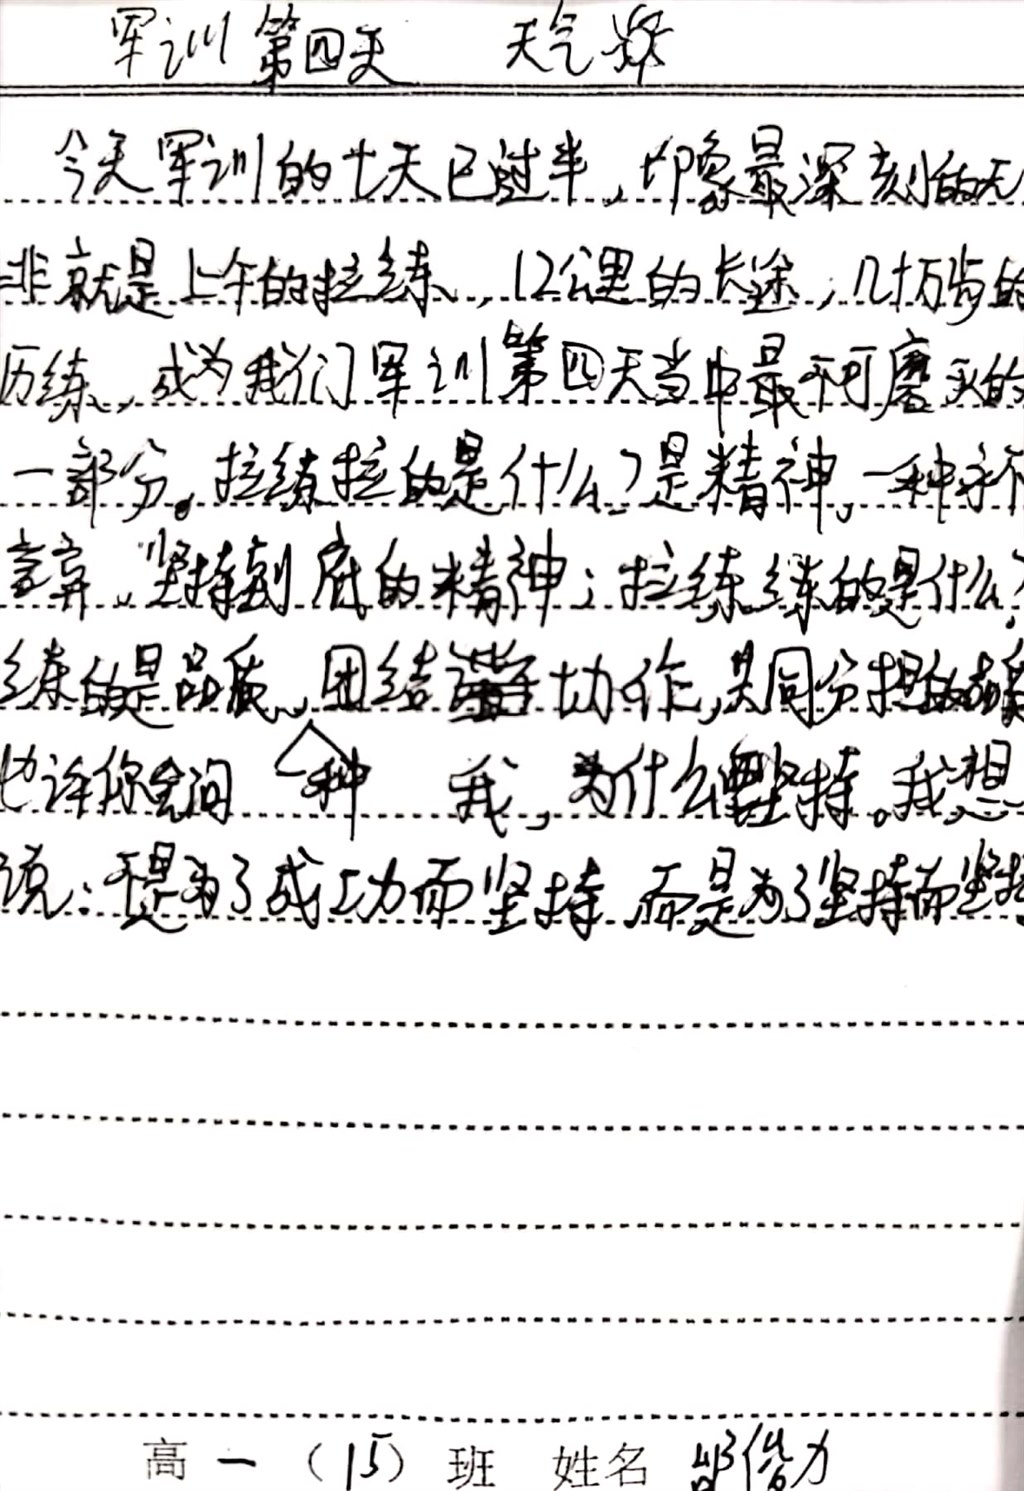 军训第四天 天气
今天军训的七天已过半，印象最深刻的无
非就是上午的拉练，12公里的长途，几十万步的
历练，成为我们军训第四天当中最不可磨灭的
一部分。拉练拉的是什么？是精神，一种永不
言弃、坚持到底的精神；拉练练的是什么？
练的是品质，团结协作，共同分担的
也许你会问 一种 我，为什么坚持。我想
说：不是为了成功而坚持，而是为了坚持而坚持
高一（15）班 姓名